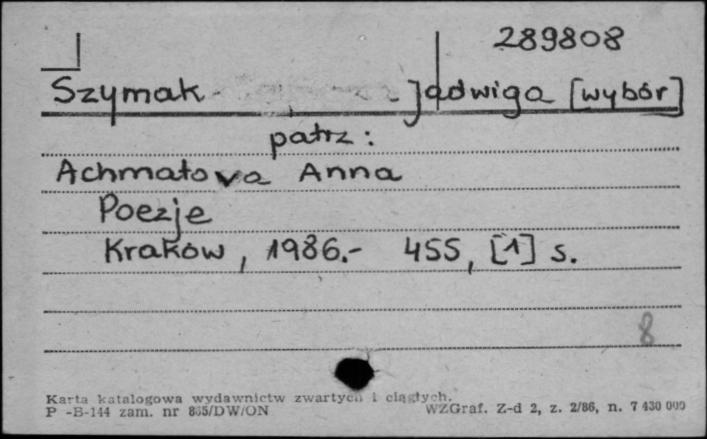 289808
Szymak Jadwiga [wybór]
patrz:
Achmatova Anna
Poezje
Kraków, 1986.- 455, [1] s.
8
Karta katalogowa wydawnictw zwartych i ciągłych.
P -B-144 zam. nr 865/DW/ON WZGraf. Z-d 2, z. 2/86, n. 7 430 000